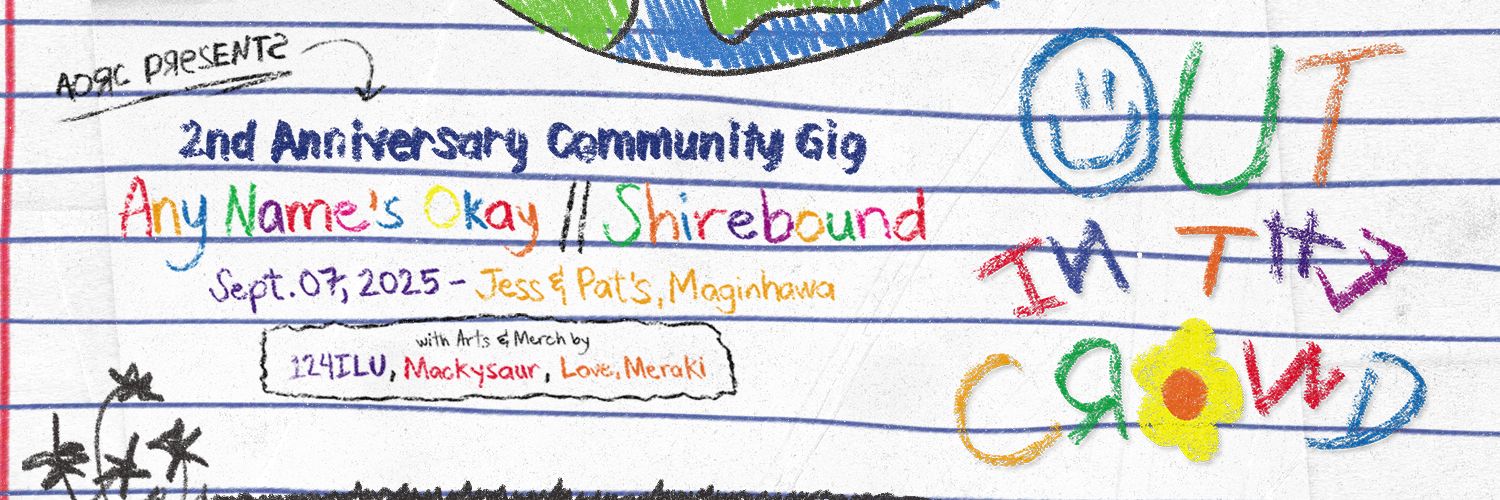 AORC PRESENTS
2nd Anniversary Community Gig
Any Name's Okay // Shirebound
Sept. 07, 2025 - Jess & Pat's, Maginhawa
with Arts & Merch by
124ILU, Mackysaur, Love, Meraki
OUT
IN THE
CROWD